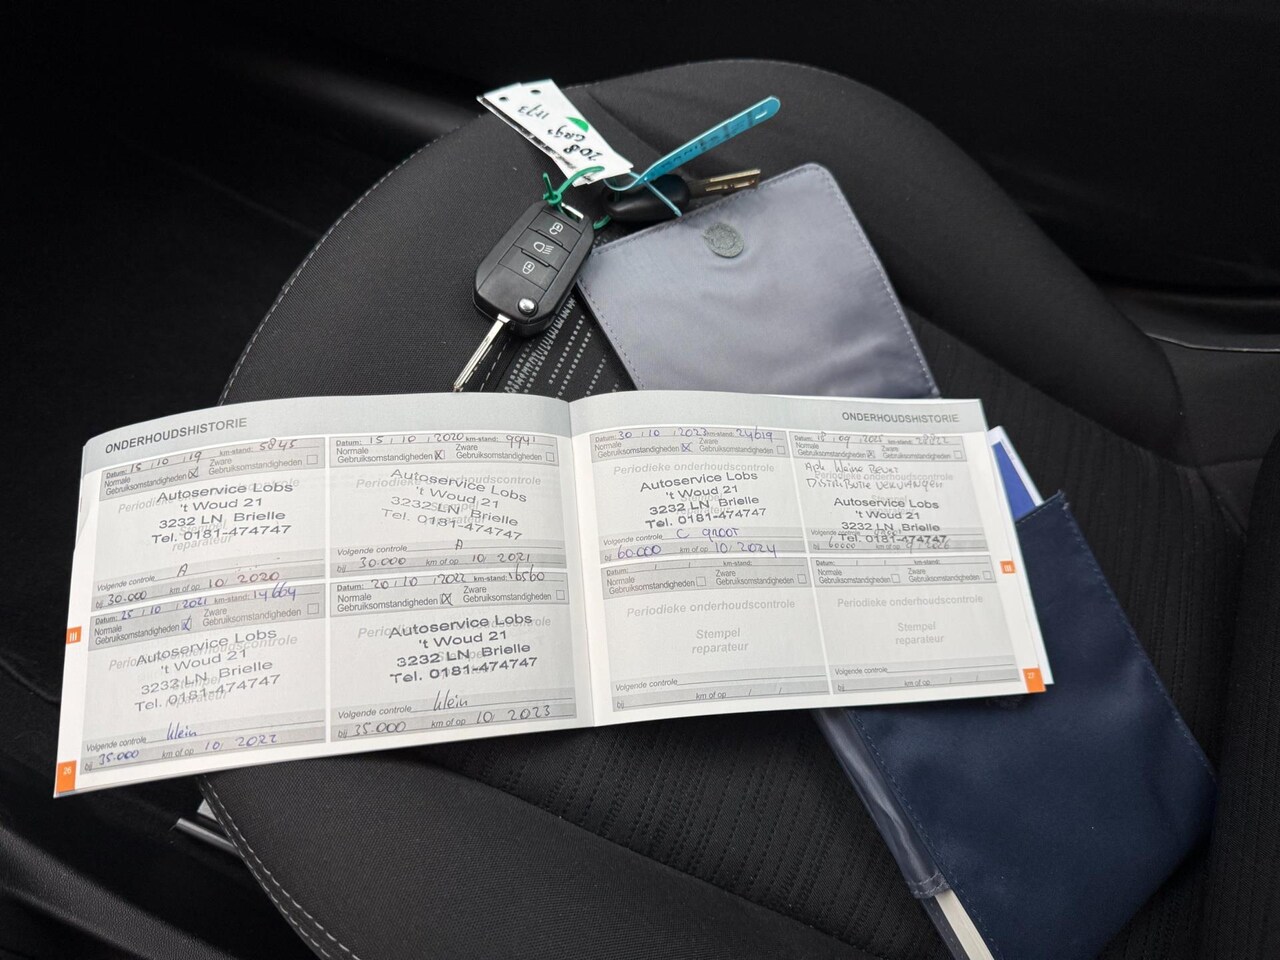 208
ONDERHOUDSHISTORIE
Datum: 15 / 10 / 19 km-stand: 5845
Normale Gebruiksomstandigheden Zware Gebruiksomstandigheden
Autoservice Lobs
't Woud 21
3232 LN Brielle
Tel. 0181-474747
reparateur
Volgende controle A
bij 30.000 km of op 10 / 2020
Datum: 15 / 10 / 2020 km-stand: 9941
Normale Gebruiksomstandigheden Zware Gebruiksomstandigheden
Autoservice Lobs
't Woud 21
3232 LN Brielle
Tel. 0181-474747
Volgende controle A
bij 30.000 km of op 10 / 2021
Datum: 25 / 10 / 2021 km-stand: 14664
Normale Gebruiksomstandigheden Zware Gebruiksomstandigheden
Autoservice Lobs
't Woud 21
3232 LN Brielle
Tel. 0181-474747
Volgende controle klein
bij 35.000 km of op 10 / 2022
Datum: 20 / 10 / 2022 km-stand: 16560
Normale Gebruiksomstandigheden Zware Gebruiksomstandigheden
Autoservice Lobs
't Woud 21
3232 LN Brielle
Tel. 0181-474747
Volgende controle klein
bij 35.000 km of op 10 / 2023
26
III
ONDERHOUDSHISTORIE
Datum: 30 / 10 / 2023 km-stand: 24619
Normale Gebruiksomstandigheden Zware Gebruiksomstandigheden
Periodieke onderhoudscontrole
Autoservice Lobs
't Woud 21
3232 LN Brielle
Tel. 0181-474747
Volgende controle C groot
bij 60.000 km of op 10 / 2024
Datum: 18 / 09 / 2025 km-stand: 28822
Normale Gebruiksomstandigheden Zware Gebruiksomstandigheden
Apk kleine Beurt
Distributie vervangen
Autoservice Lobs
't Woud 21
3232 LN Brielle
Tel. 0181-474747
Volgende controle
bij 60000 km of op 9 / 2026
Datum: / / km-stand:
Normale Gebruiksomstandigheden Zware Gebruiksomstandigheden
Periodieke onderhoudscontrole
Stempel
reparateur
Volgende controle
bij km of op / /
Datum: / / km-stand:
Normale Gebruiksomstandigheden Zware Gebruiksomstandigheden
Periodieke onderhoudscontrole
Stempel
reparateur
Volgende controle
bij km of op / /
III
27